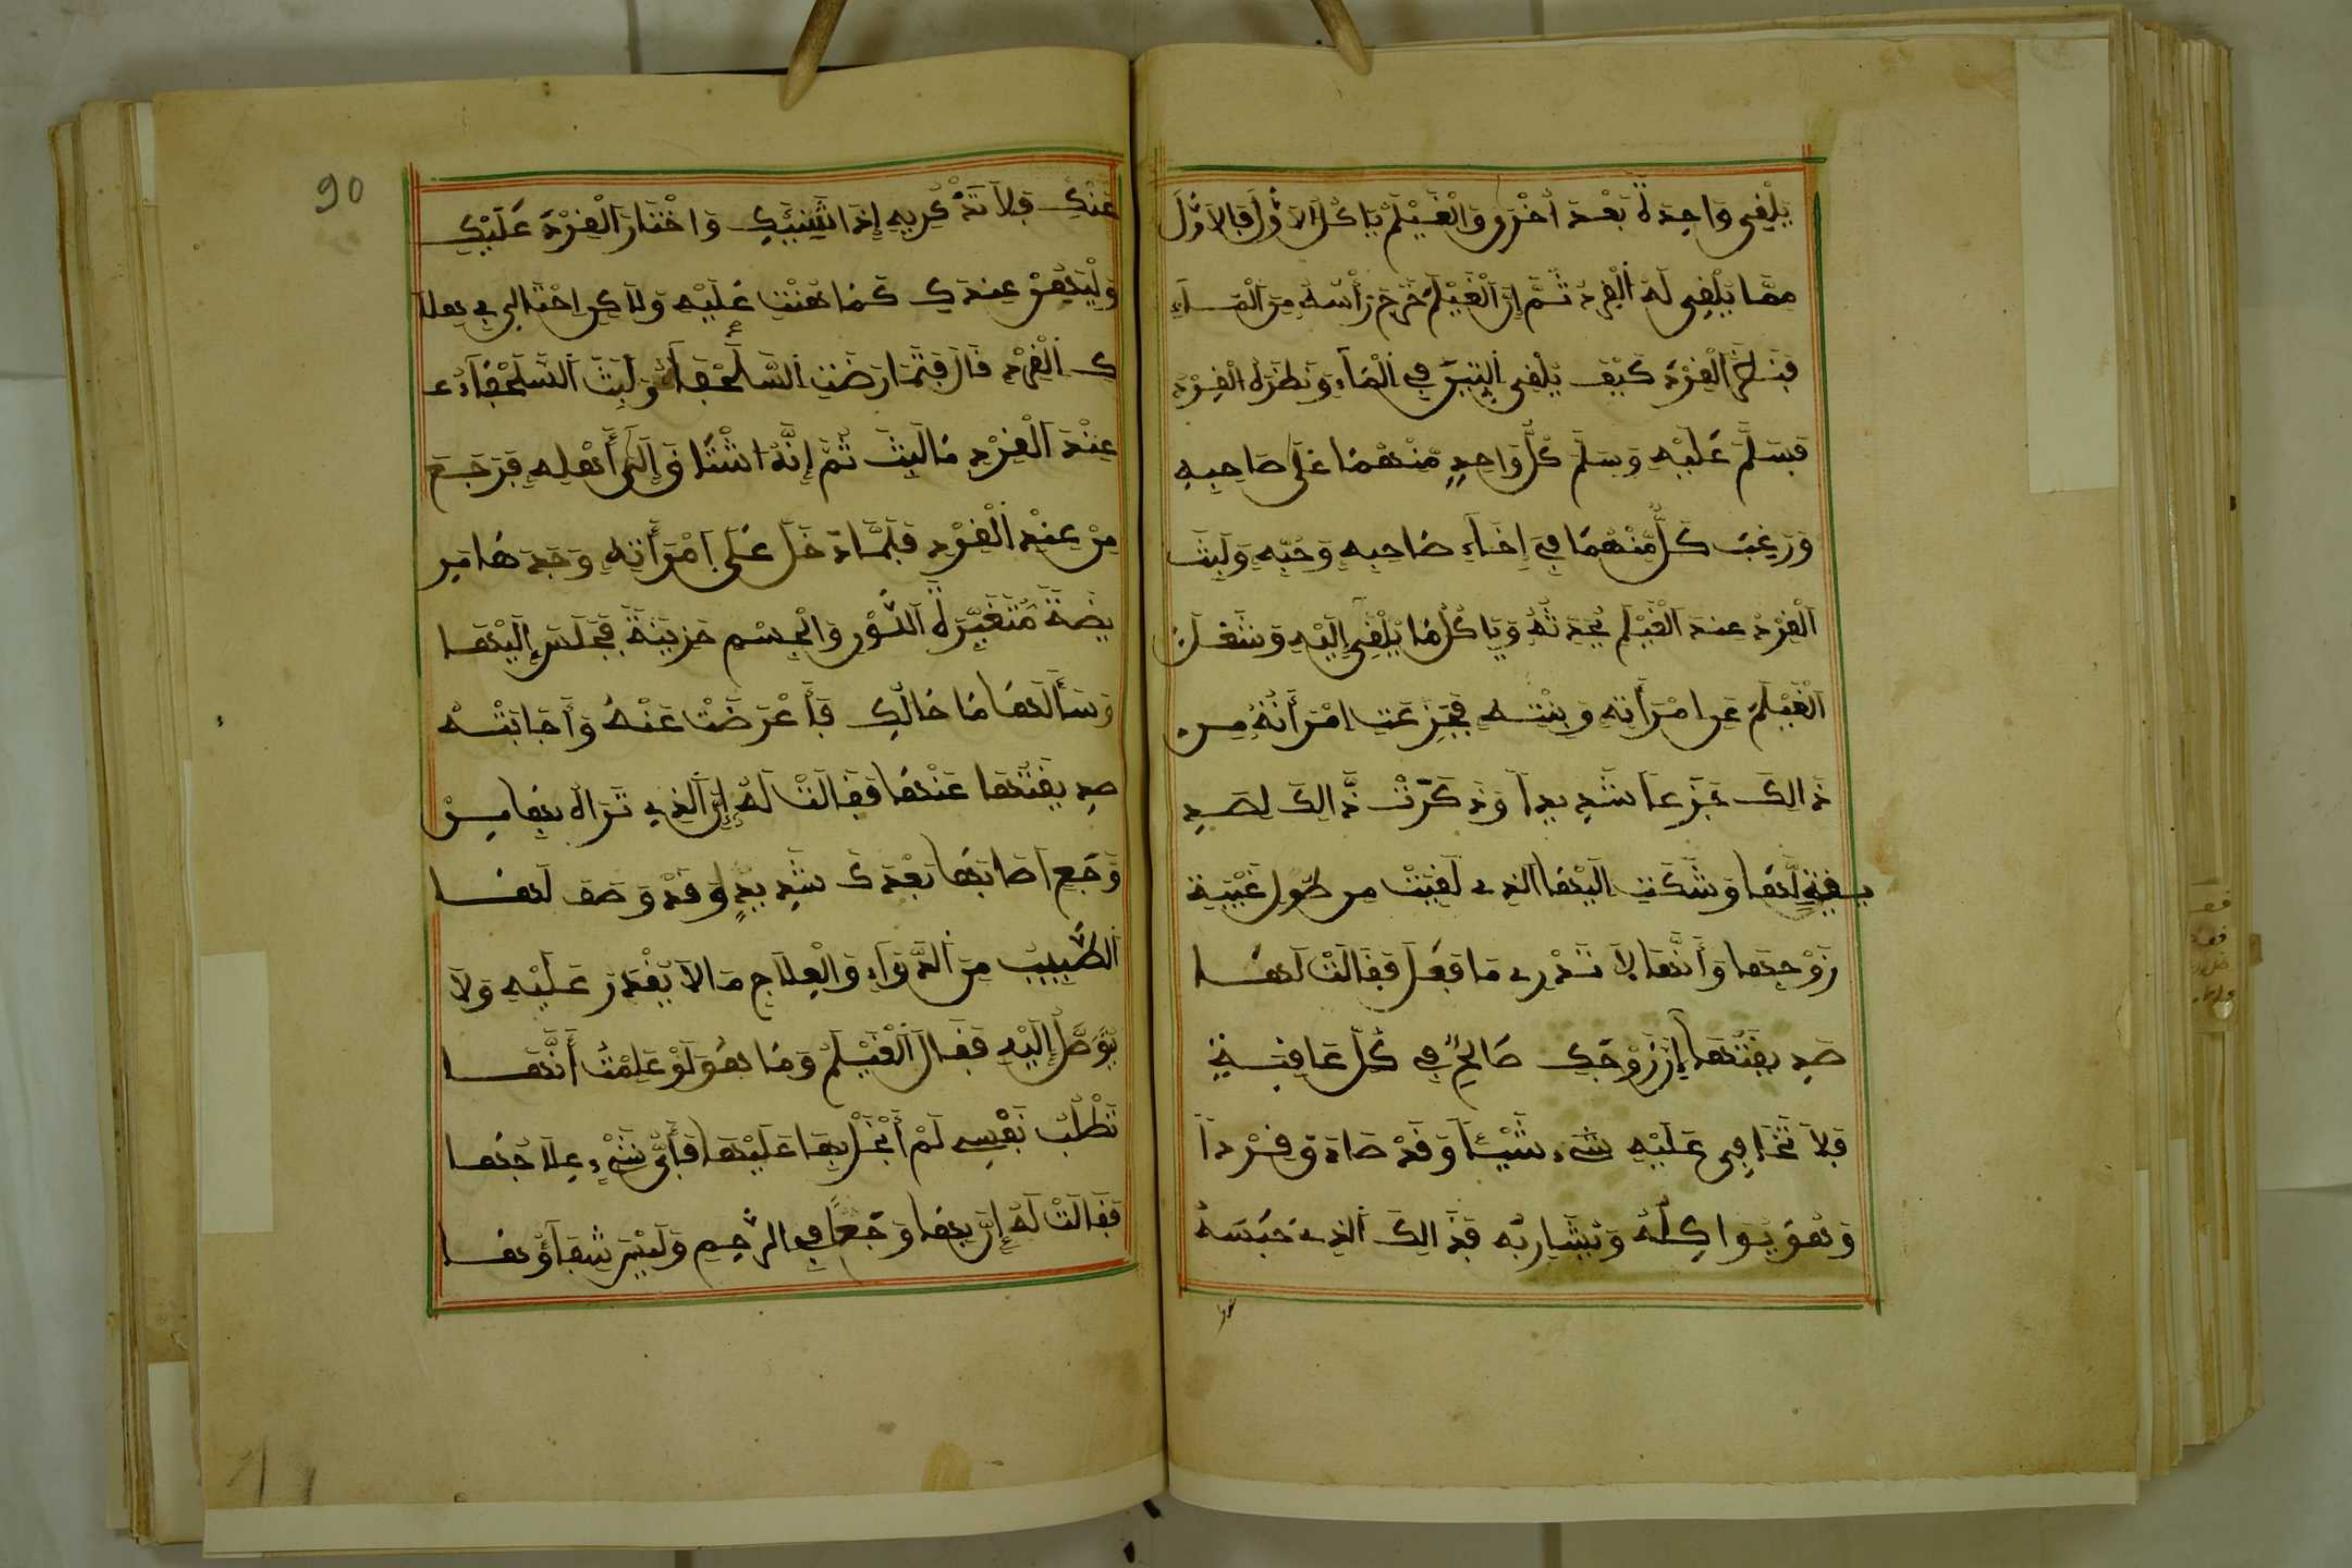 يلقي واحدة بعد أخرى والغيلم ياكل الاول فالاول
مما يلقي له القرد ثم إن الغيلم خرج رأسه من الماء
القرد كيف يلقي التين في الماء ونظر له القرد
فسلم عليه وسلم كل واحد منهما على صاحبه
ورغب كل منهما في إخاء صاحبه وحبه ولبث
القرد عند الغيلم يحدثه وياكل ما يلقي إليه وشغل
الغيلم عن امرأته وبنته فجزعت امرأته من
ذالك جزعا شديدا وذكرت ذالك لصد
يقة لها وشكت اليها الذي لقيت من طول غيبة
زوجها وأنها لا تدري ما فعل فقالت لها
صديقتها إن زوجك صالح في كل عافية
فلا تخافي عليه شيء شيئا وقد صادق قردا
وهو يواكله ويشاربه فذالك الذي حبسه
90
عنك فلا تذكريه إذا نسيك واختار القرد عليك
وليهن عندك كما هنت عليه ولاكن احتالي في هلا
ك القرد قال فتمارضت السلحفاء ولبث السلحفاء
عند القرد ما لبث ثم إنه اشتاق إلى أهله فرجع
من عند القرد فلما دخل على امرأته وجدها مر
يضة متغيرة اللون والجسم حزينة فجلس إليها
وسألها ما حالك فأعرضت عنه وأجابته
صديقتها عنها فقالت له إن الذي تراه بها من
وجع أصابها بعدك شديد وقد وصف لها
الطبيب من الدواء والعلاج ما لا يقدر عليه ولا
يتوصل إليه فقال الغيلم وما هو لو علمت أنها
تطلب نفسي لم أبخل بها عليها فأي شيء علاجها
فقالت له إن بها وجعا في الرحم وليس شفاؤها